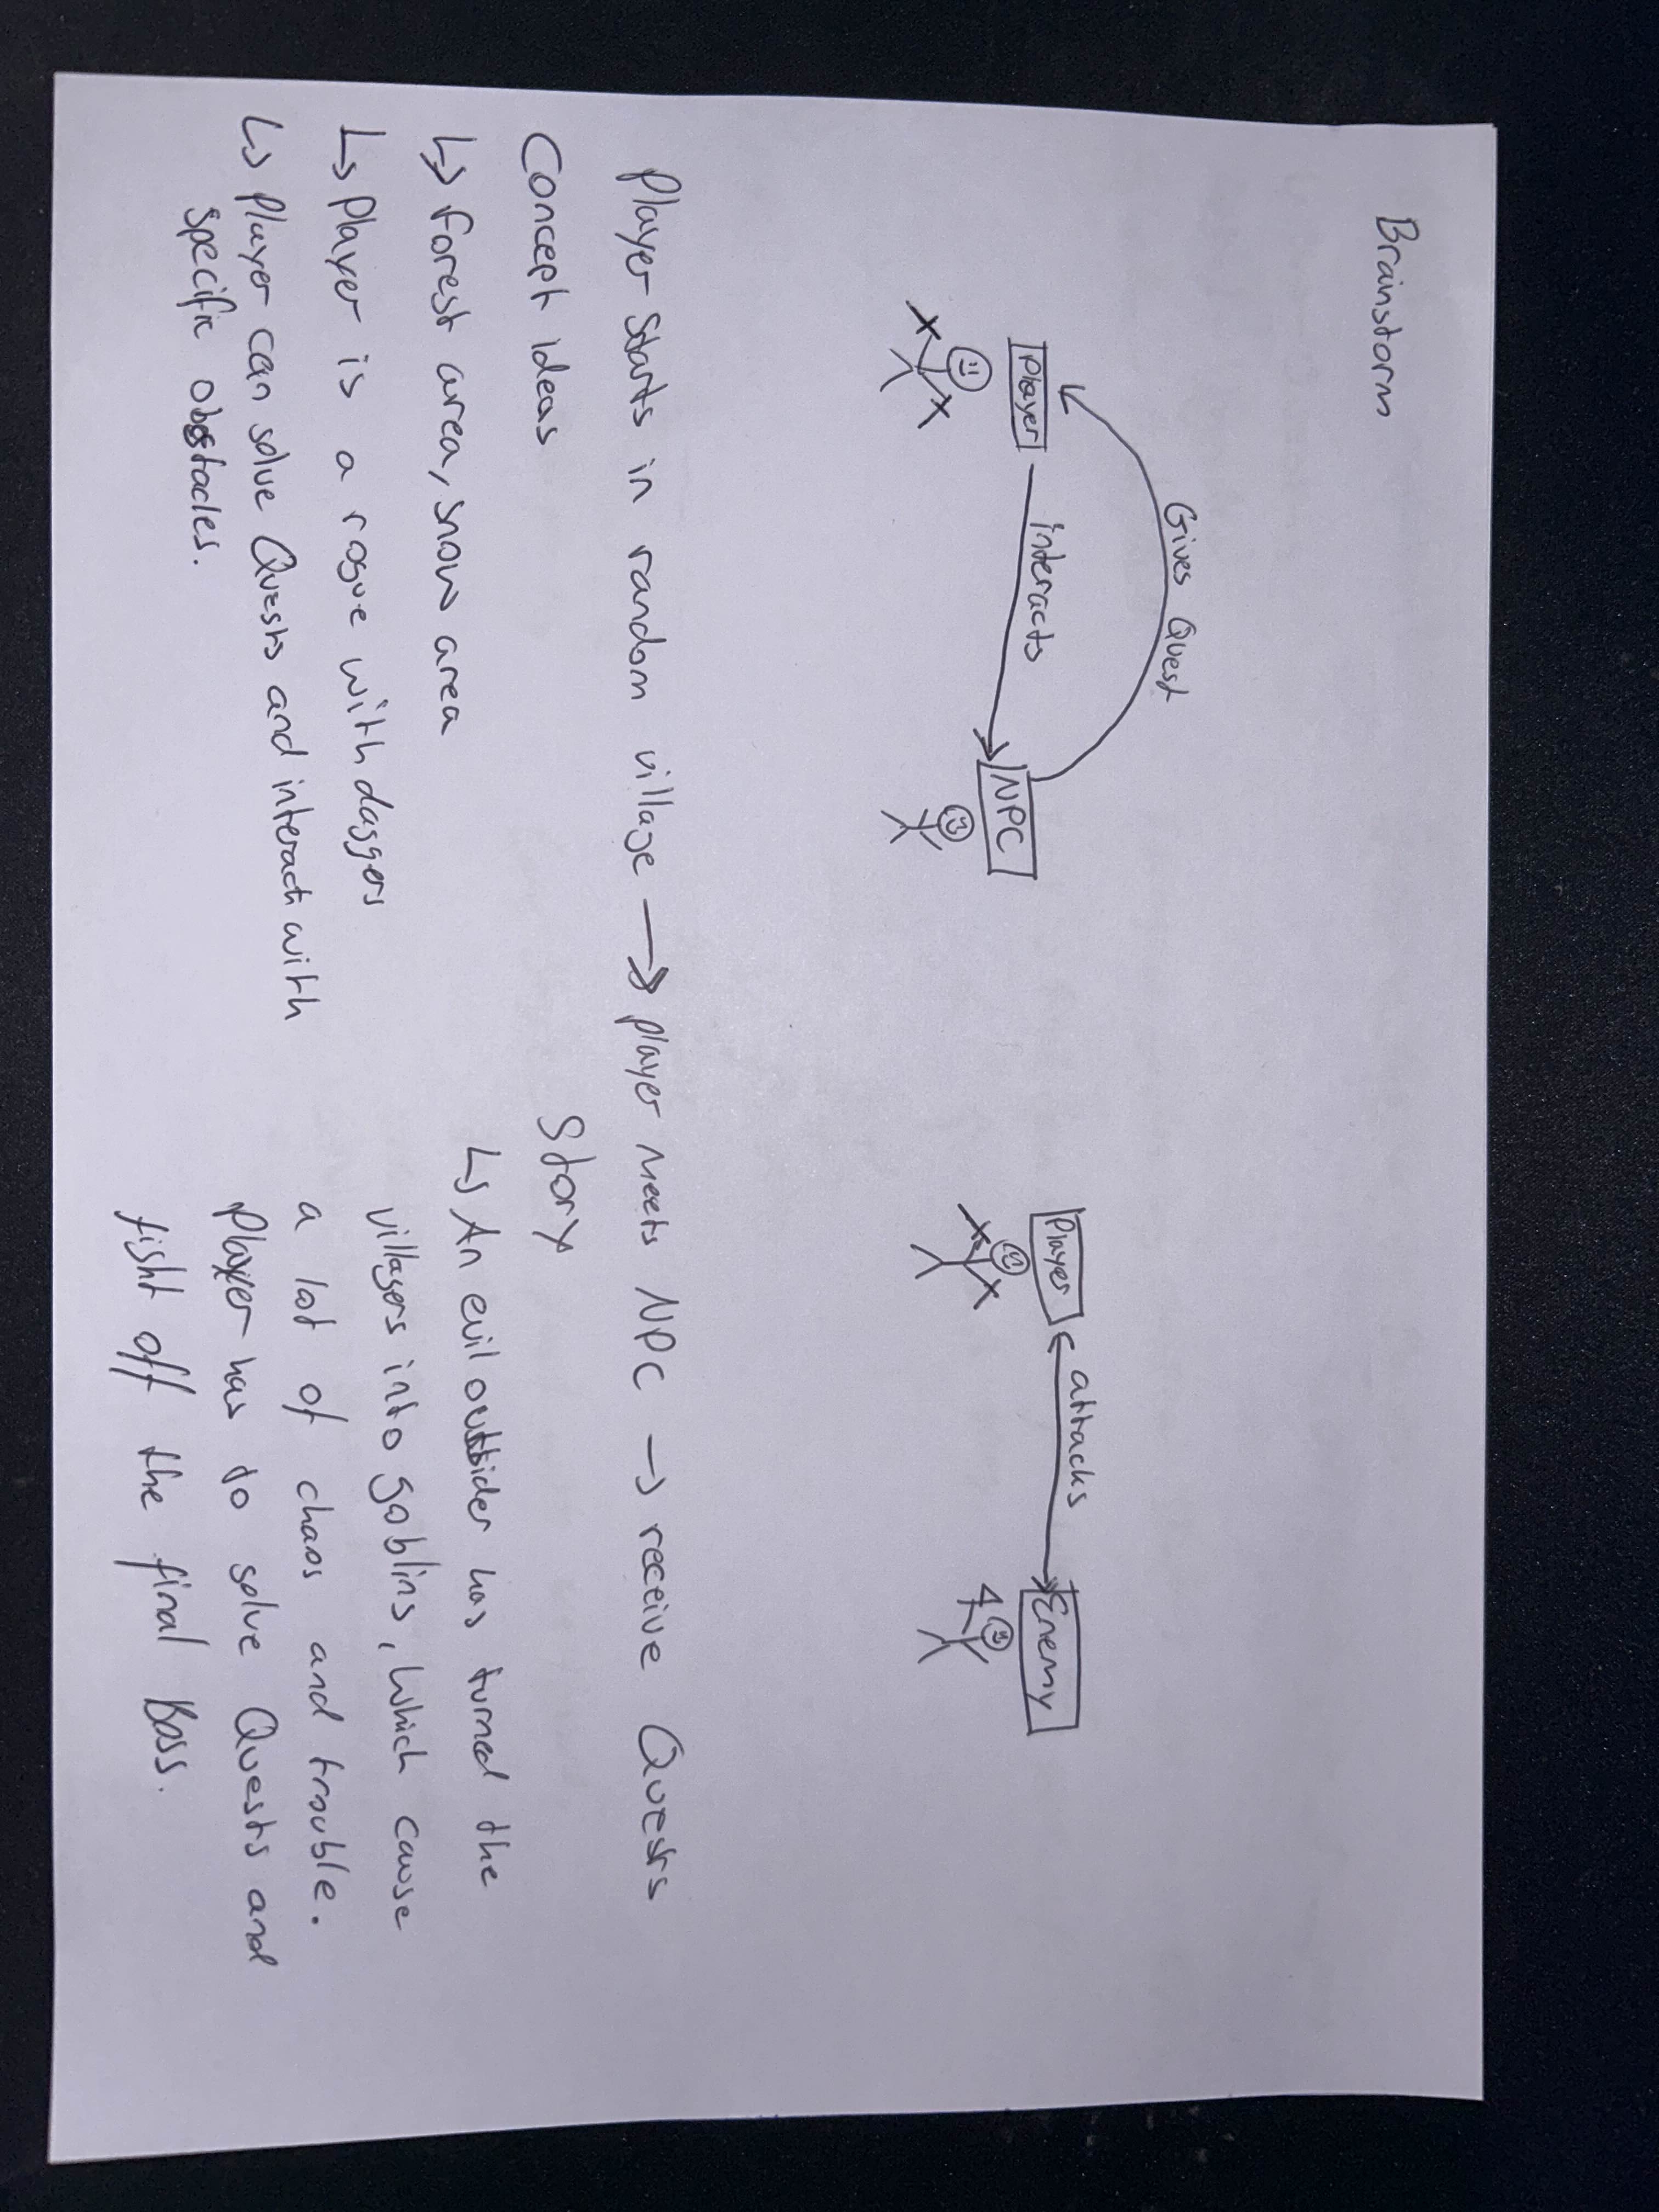 Brainstorm
Gives Quest
Player
interacts
NPC
Player
attacks
Enemy
Player starts in random village → player meets NPC → receive Quests
Concept ideas
↳ forest area, snow area
↳ Player is a rogue with daggers
↳ Player can solve Quests and interact with
specific obstacles.
Story
↳ An evil outsider has turned the
villagers into goblins, which cause
a lot of chaos and trouble.
Player has to solve Quests and
fight off the final Boss.